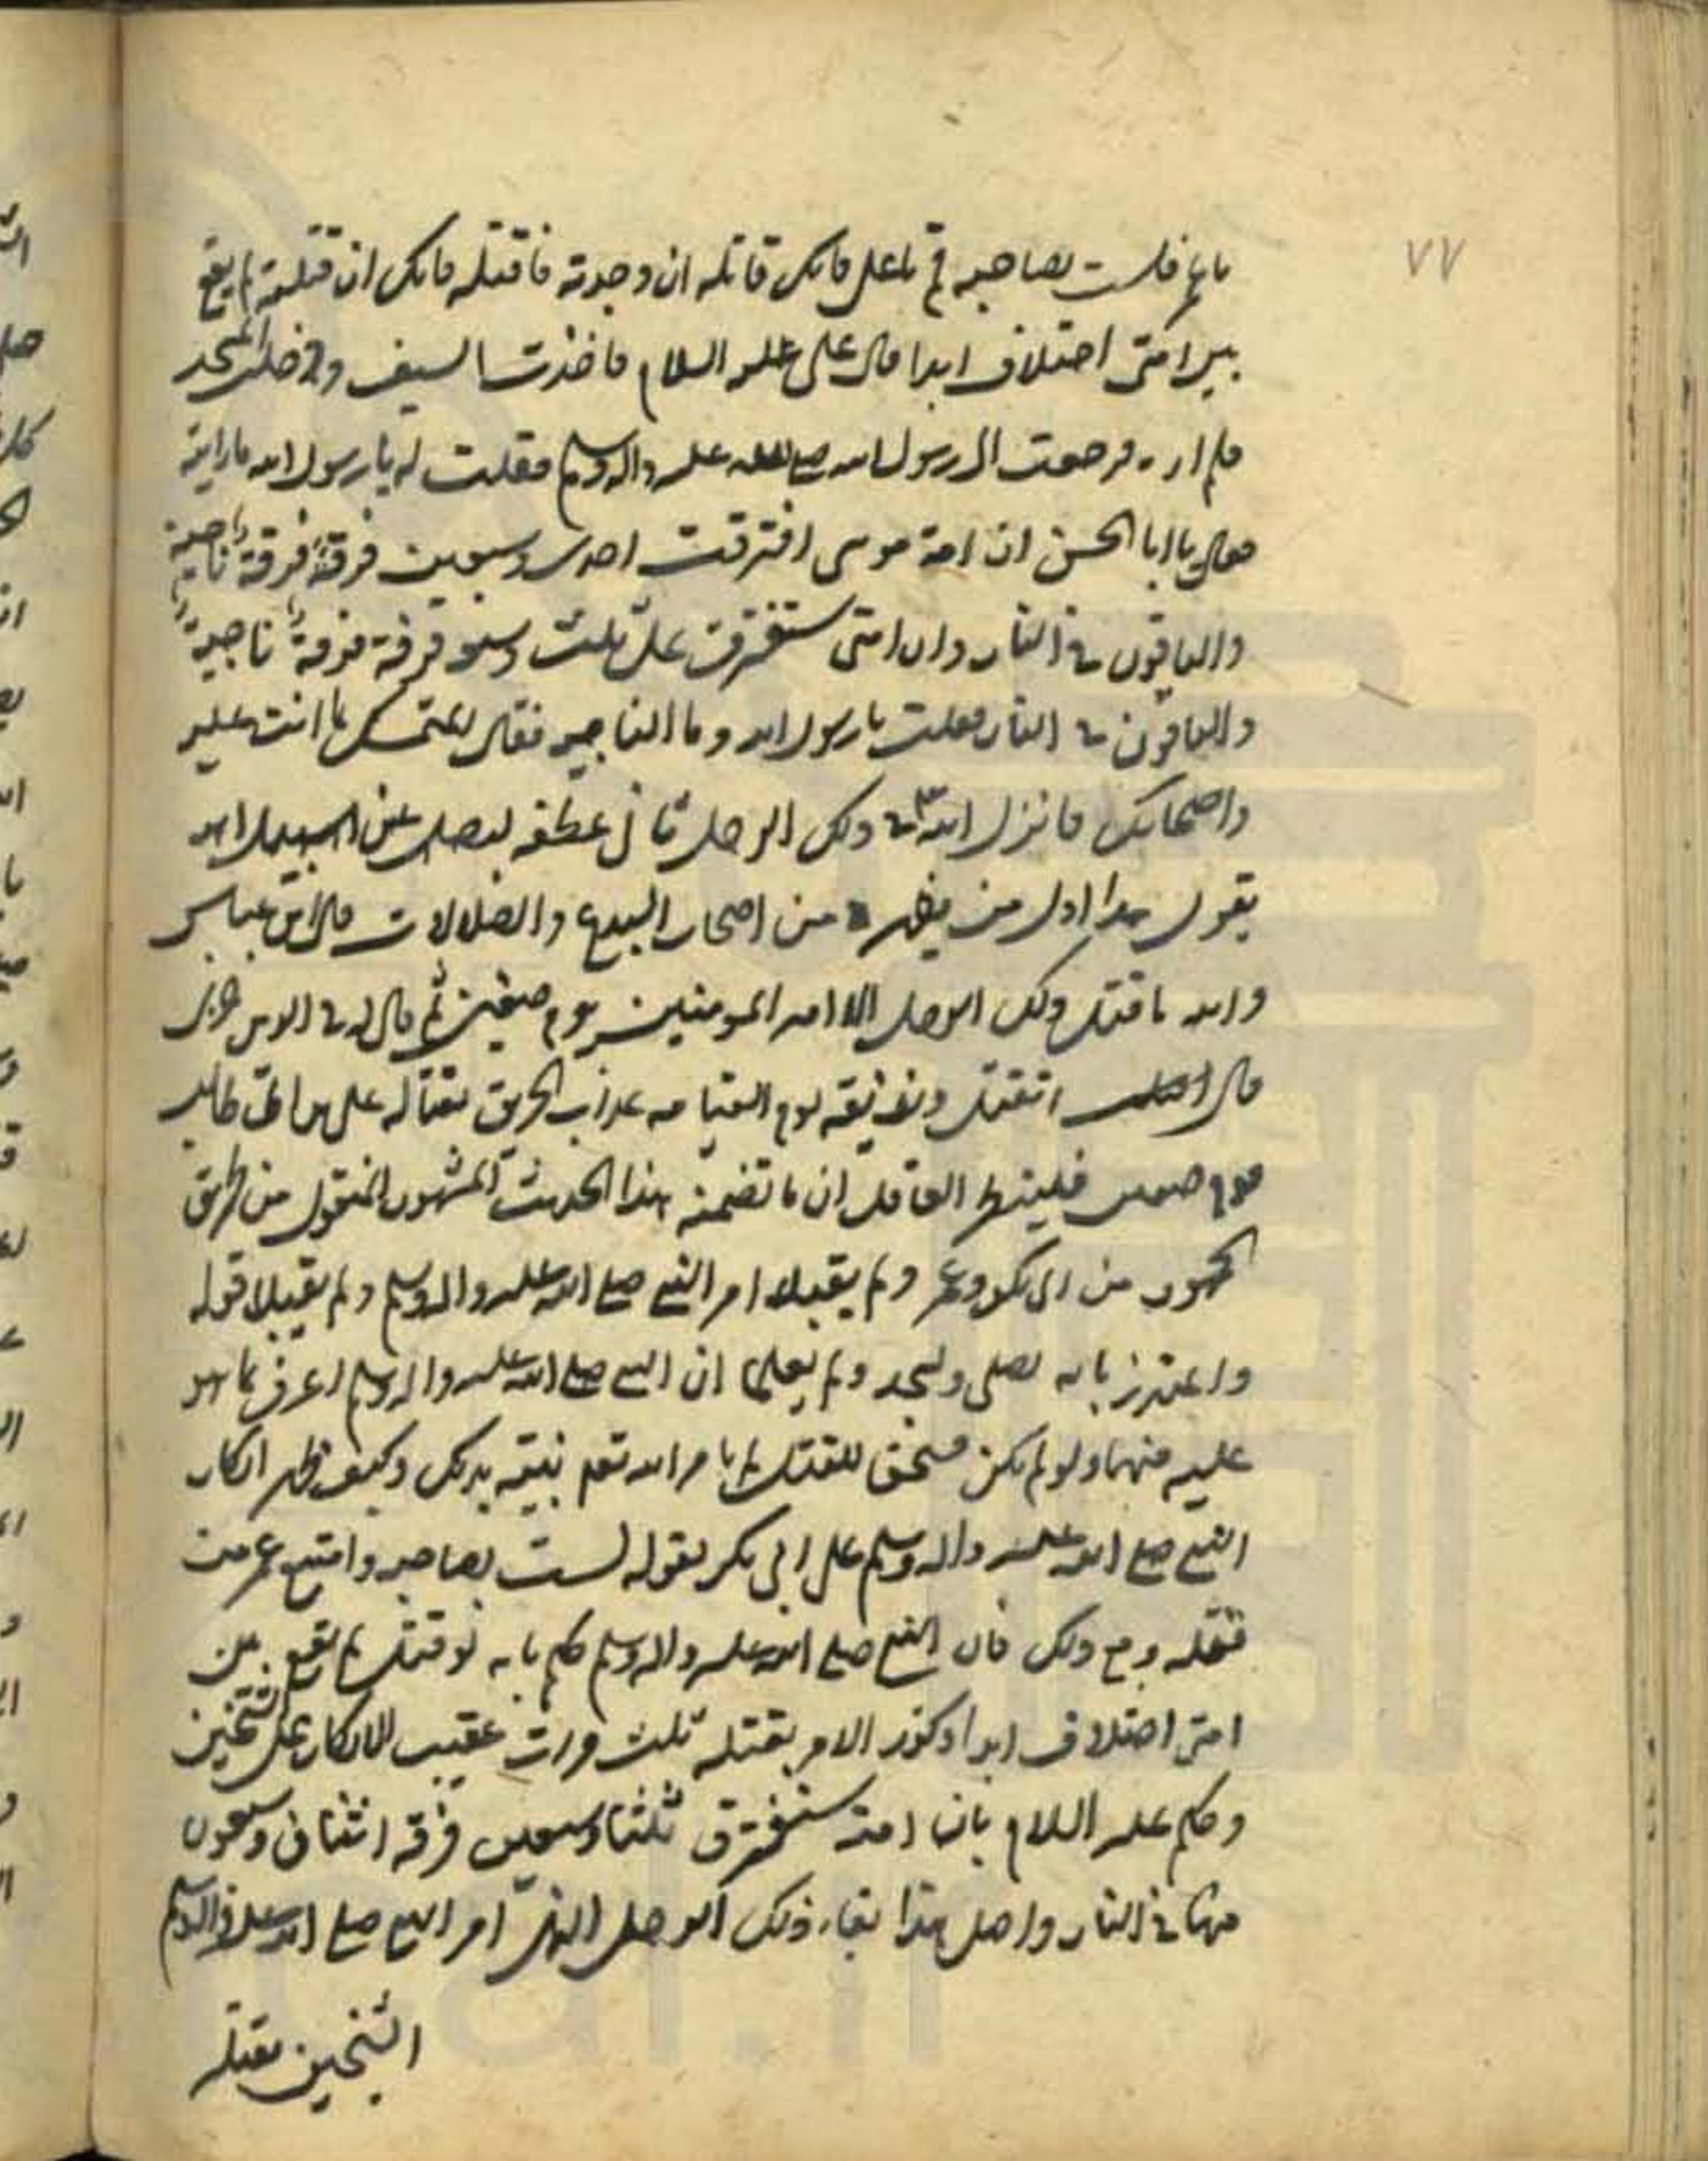 ٧٧
يا عمر فلست بصاحبه قم يا علي فانك قاتله ان وجدته فاقتله فانك ان قتلته لم يقع
بين امتي اختلاف ابدا قال علي عليه السلام فاخذت السيف ودخلت المسجد
فلم اره فرجعت الى رسول الله صلى الله عليه واله وسلم فقلت له يا رسول الله ما رايته
فقال يا ابا الحسن ان امة موسى افترقت احدى وسبعين فرقة فرقة ناجية
والباقون في النار وان امتي ستفترق على ثلث وسبعين فرقة فرقة ناجية
والباقون في النار فقلت يا رسول الله وما الناجيه فقال المتمسك بما انت عليه
واصحابك فانزل الله في ذلك الرجل ثاني عطفه ليضل عن سبيل الله
يقول هذا اول من يظهر من اصحاب البدع والضلالات قال ابن عباس
والله ما قتل ذلك الرجل الا امير المومنين يوم صفين ثم قال له في الدنيا خزي
قال القتل ونذيقه يوم القيامه عذاب الحريق بقتاله علي بن ابي طالب
يوم صفين فلينظر العاقل ان ما تضمنه هذا الحديث المشهور المنقول من طرق
الجمهور من ابي بكر وعمر ولم يقبلا امر النبي صلى الله عليه واله وسلم ولم يقبلا قوله
واعتذرا بانه يصلي ويسجد ولم يعلما ان النبي صلى الله عليه واله وسلم اعرف بما هو
عليه منهما ولو لم يكن مستحق للقتل لم يامر الله تعالى نبيه بذلك وكيف ظهر انكار
النبي صلى الله عليه واله وسلم على ابي بكر بقوله لست بصاحبه وامتنع عمر من
قتله ومع ذلك فان النبي صلى الله عليه واله وسلم حكم بانه لو قتل لم يقع بين
امتي اختلاف ابدا وكرر الامر بقتله ثلث مرات عقيب الانكار على الشيخين
وحكم عليه السلام بان امته ستفترق ثلثا وسبعين فرقه اثنان وسبعون
منها في النار واصل هذا بقاء ذلك الرجل الذي امر النبي صلى الله عليه واله وسلم
الشيخين بقتله